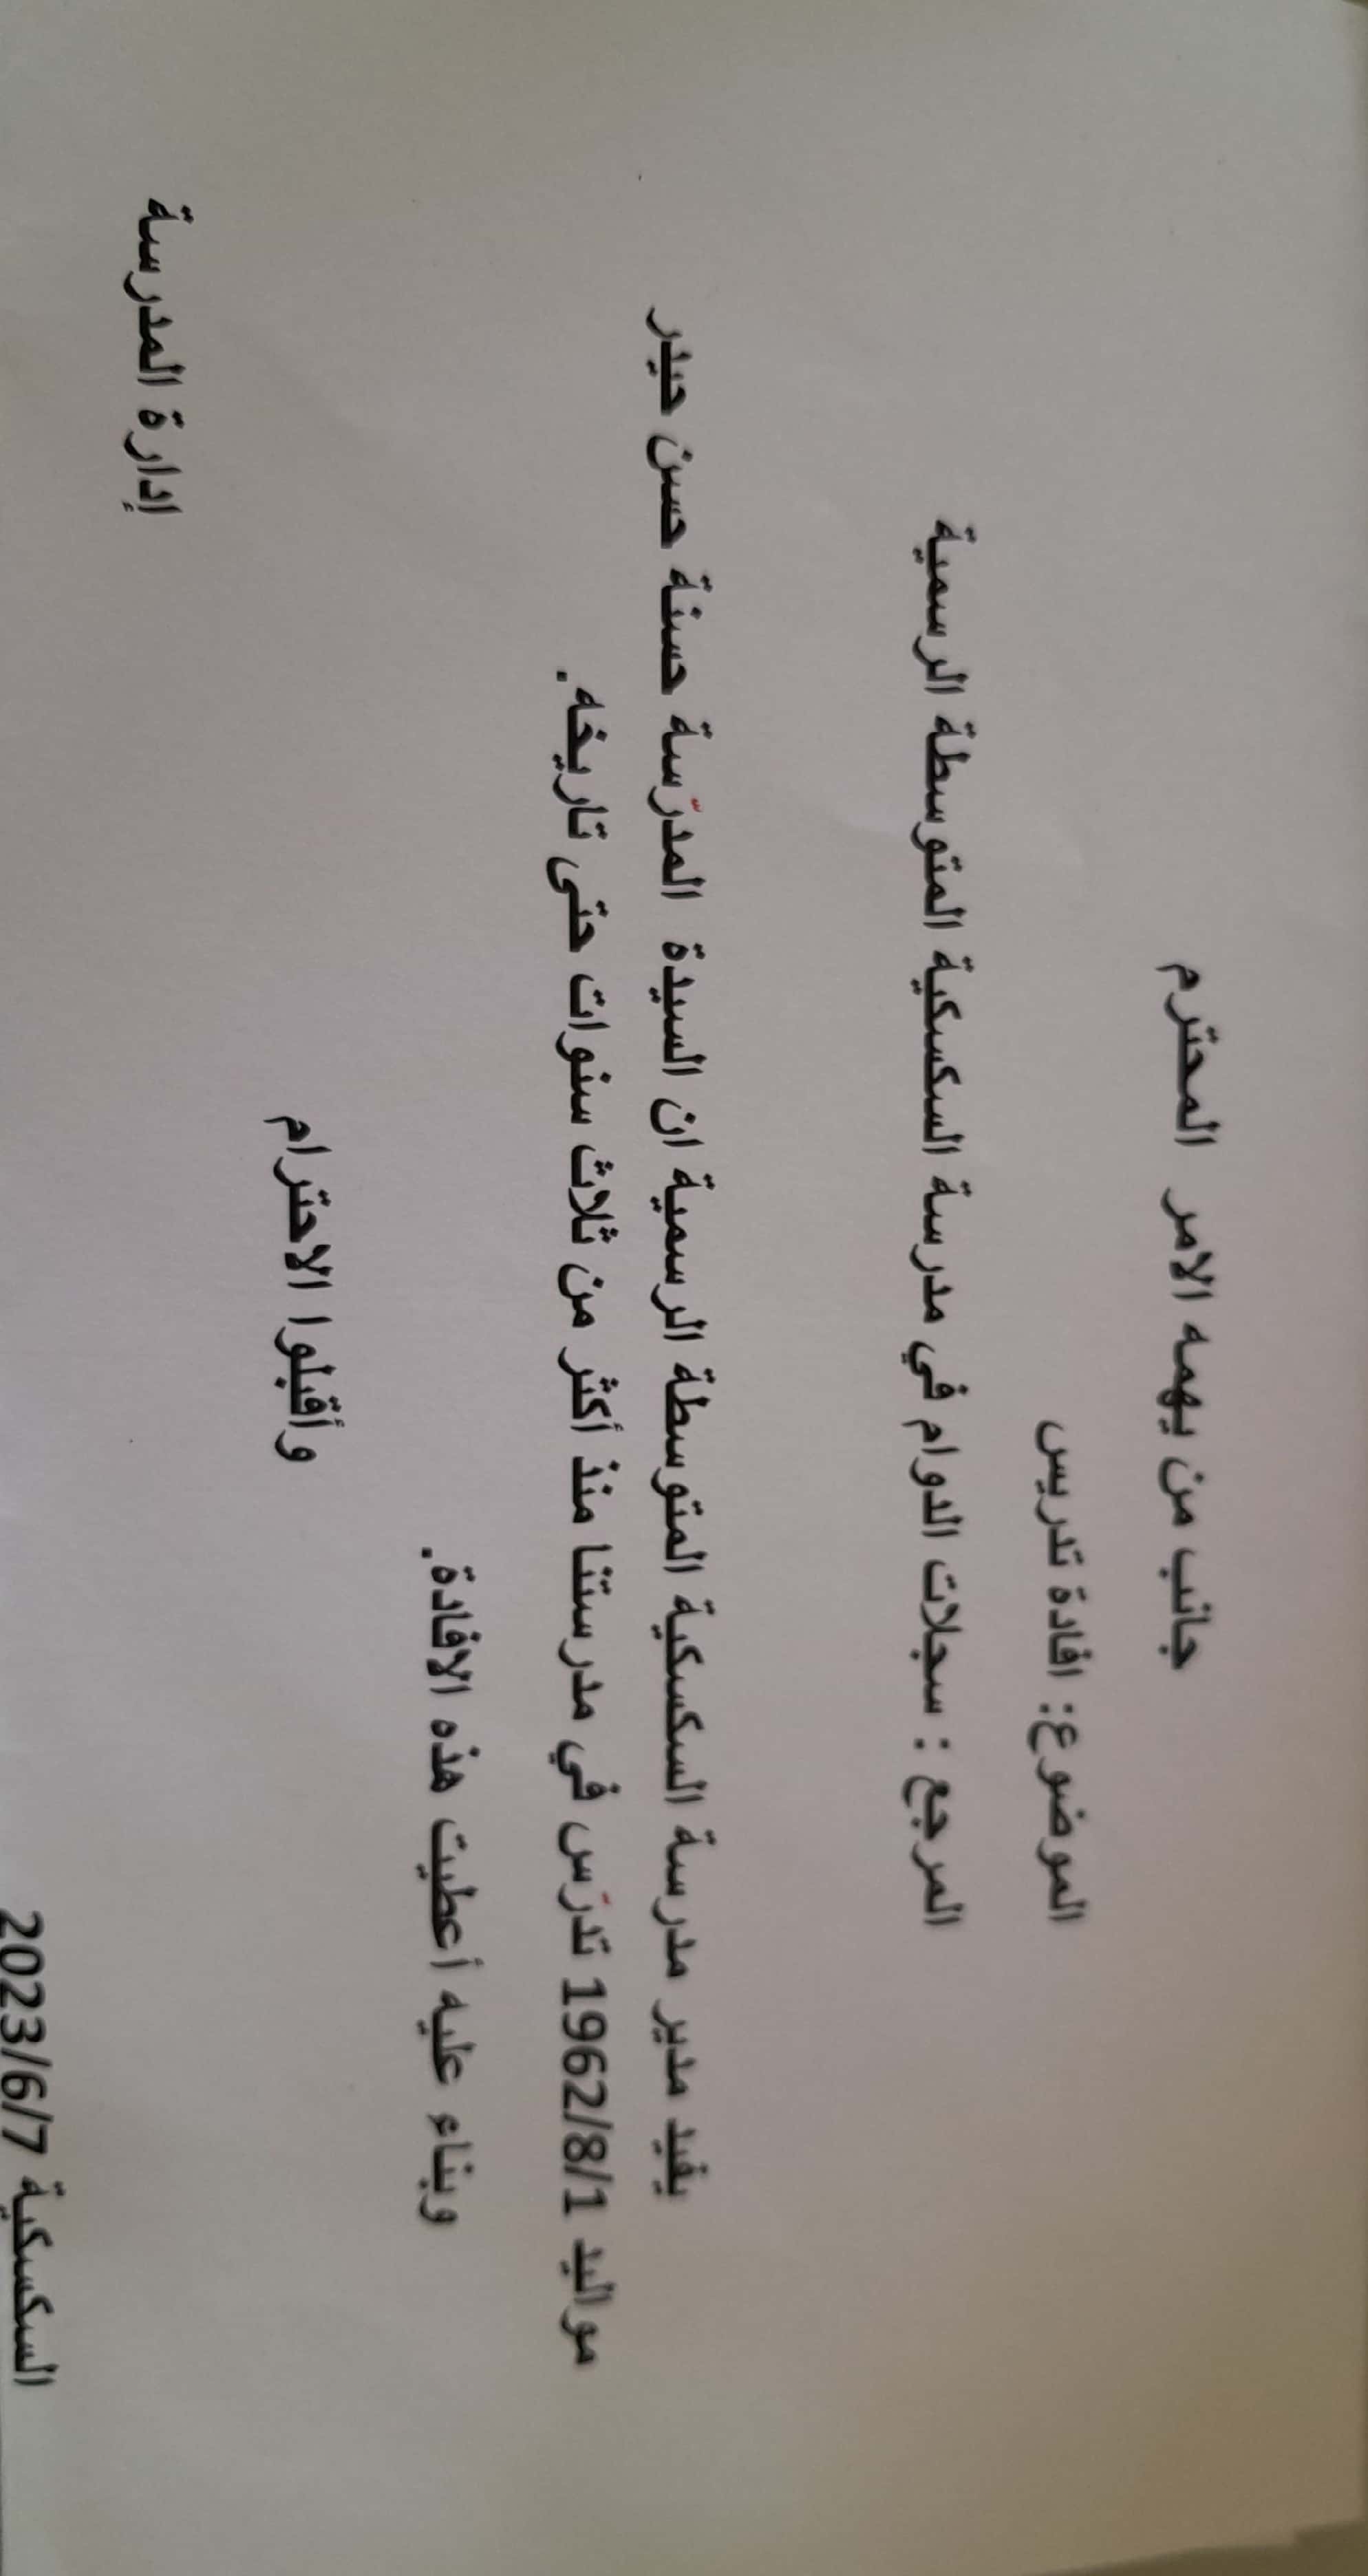 جانب من يهمه الامر المحترم
الموضوع: افادة تدريس
المرجع : سجلات الدوام في مدرسة السكسكية المتوسطة الرسمية
يفيد مدير مدرسة السكسكية المتوسطة الرسمية ان السيدة المدرّسة حسنة حسن حيدر
مواليد 1962/8/1 تدرّس في مدرستنا منذ أكثر من ثلاث سنوات حتى تاريخه.
وبناء عليه أعطيت هذه الافادة.
وأقبلوا الاحترام
إدارة المدرسة
السكسكية 2023/6/7